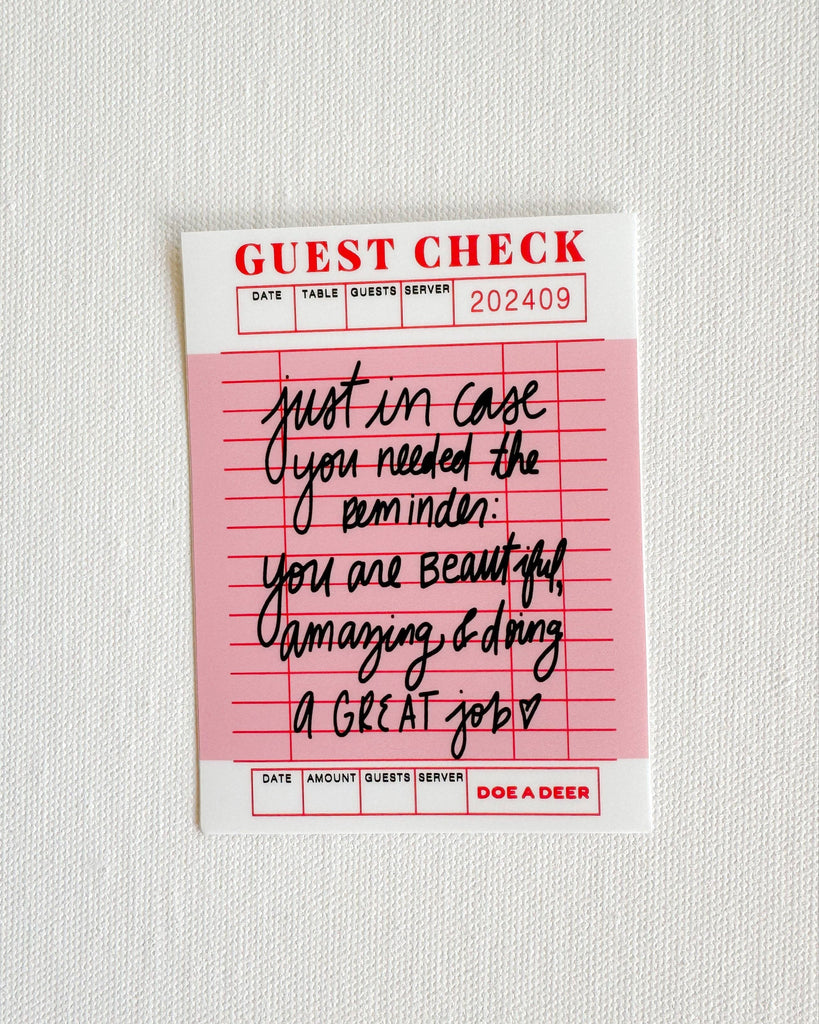 GUEST CHECK
DATE TABLE GUESTS SERVER 202409
just in case
you needed the
reminder:
you are BEAUtiful,
amazing & doing
a GREAT job♡
DATE AMOUNT GUESTS SERVER DOE A DEER